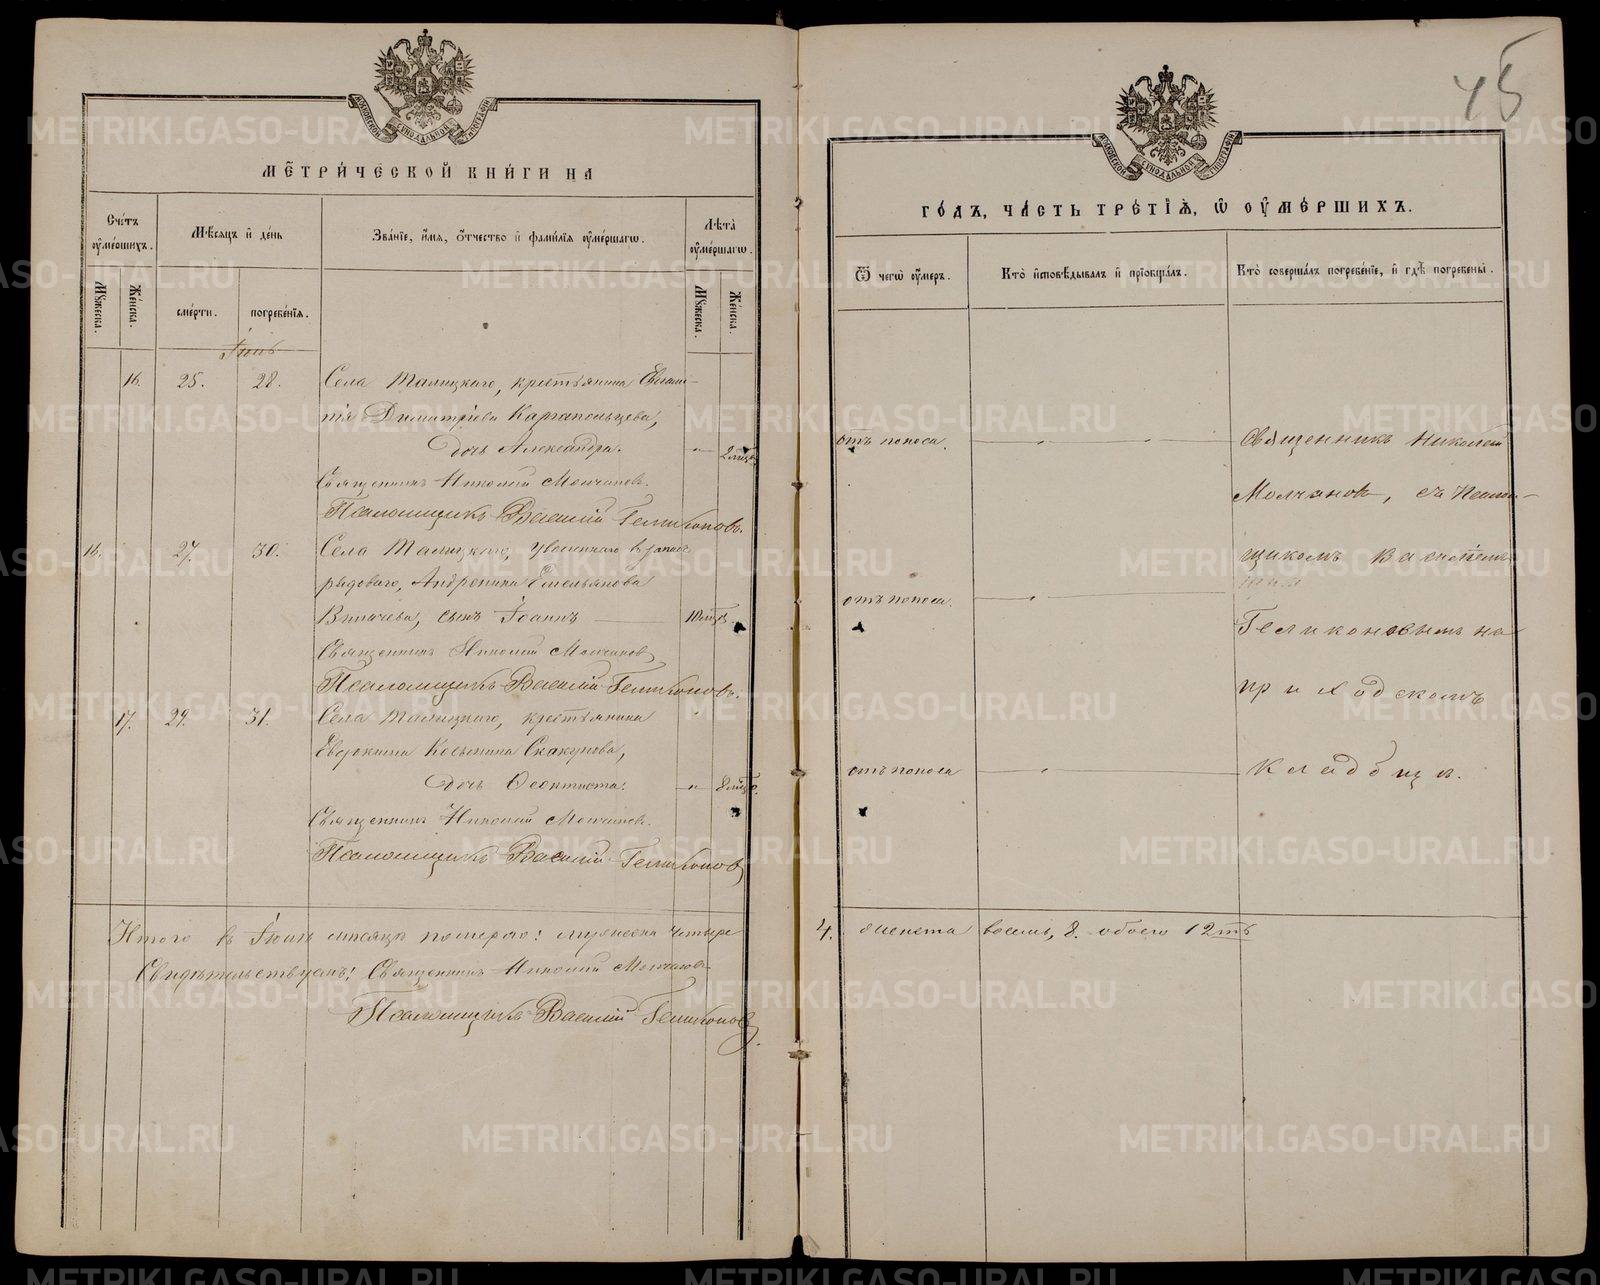 45
МОСКОВСКОЙ СѴНОДАЛЬНОЙ ТИПОГРАФІИ
МЕТРИ́ЧЕСКОЙ КНИ́ГИ НА
Сче́тъ оу҆ме́ршихъ.
Мѣ́сяцъ и҆ де́нь
Зва́нїе, и҆́мя, ѻ҆́тчество и҆ фами́лїя оу҆ме́ршагѡ.
Лѣ́та оу҆ме́ршагѡ.
Мꙋ́жеска.
Же́нска.
сме́рти.
погребе́нїя.
Мꙋ́жеска.
Же́нска.
16. 25. 28. Села Талицкаго, крестьянина
Димитріева Каргапольцева,
Дочь Александра. " 2 мѣсц.
Священникъ Николай Молчановъ.
Псаломщикъ Василій Геликоновъ.
16. 27. 30. Села Талицкаго, уволеннаго в запасъ
рядоваго, Андроника Емельянова
сынъ Іоаннъ 10 мѣсц.
Священникъ Николай Молчановъ
Псаломщикъ Василій Геликоновъ.
17. 29. 31. Села Талицкаго, крестьянина
Евдокима Косьмина Скакунова,
Дочь Ѳеоктиста. " 8 мѣсц.
Священникъ Николай Молчановъ.
Псаломщикъ Василій Геликоновъ
Итого в Іюнѣ мѣсяцѣ померло: мужеска четыре
Свидѣтельствуемъ: Священникъ Николай Молчановъ
Псаломщикъ Василій Геликоновъ.
МОСКОВСКОЙ СѴНОДАЛЬНОЙ ТИПОГРАФІИ
ГО́ДЪ, ЧА́СТЬ ТРЕ́ТІЯ, Ѡ ОУ҆МЕ́РШИХЪ.
Ѿ чегѡ̀ оу҆́меръ.
Кто̀ и҆сповѣ́дывалъ и҆ прїѡбща́лъ.
Кто̀ соверша́лъ погребе́нїе, и҆ гдѣ̀ погребены̀.
отъ поноса.
Священникъ Николай
Молчановъ, съ Псалом-
щикомъ Василіемъ
отъ поноса.
Геликоновымъ на
приходскомъ
отъ поноса
кладбищѣ.
4. женска восемь, 8. обоего 12ть
METRIKI.GASO-URAL.RU